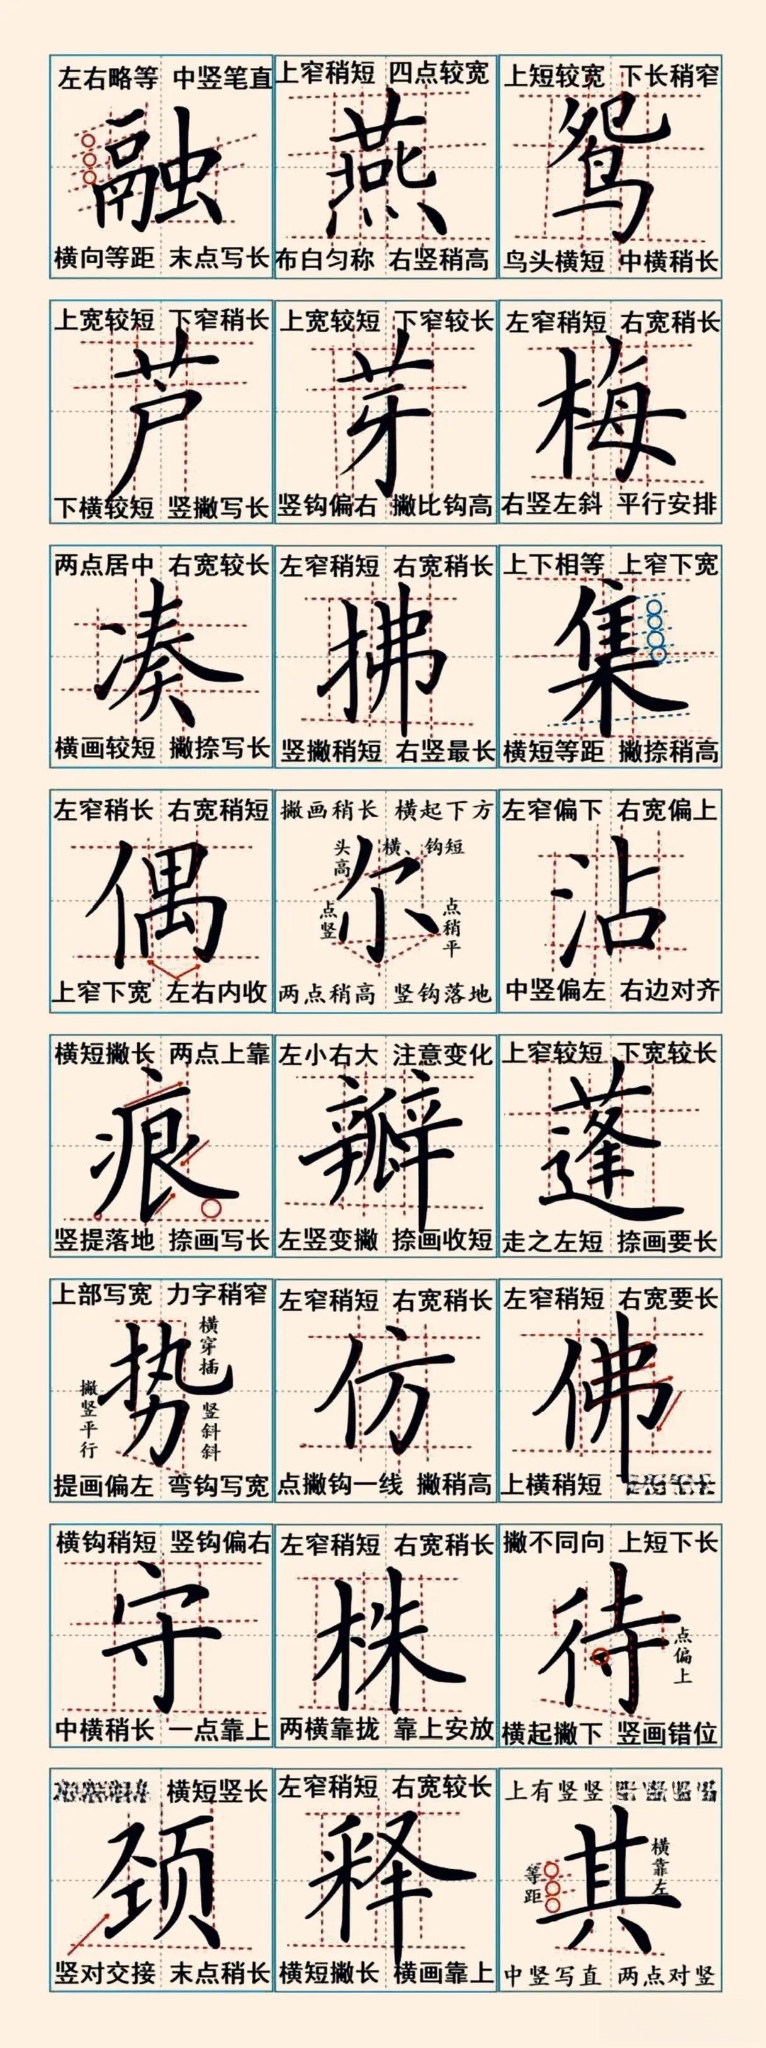 左右略等 中竖笔直
融
横向等距 末点写长
上窄稍短 四点较宽
燕
布白匀称 右竖稍高
上短较宽 下长稍窄
鸳
鸟头横短 中横稍长
上宽较短 下窄稍长
芦
下横较短 竖撇写长
上宽较短 下窄较长
芽
竖钩偏右 撇比钩高
左窄稍短 右宽稍长
梅
右竖左斜 平行安排
两点居中 右宽较长
凑
横画较短 撇捺写长
左窄稍短 右宽稍长
拂
竖撇稍短 右竖最长
上下相等 上窄下宽
集
横短等距 撇捺稍高
左窄稍长 右宽稍短
偶
上窄下宽 左右内收
撇画稍长 横起下方
头高
横、钩短
尔
点竖
点稍平
两点稍高 竖钩落地
左窄偏下 右宽偏上
沾
中竖偏左 右边对齐
横短撇长 两点上靠
痕
竖提落地 捺画写长
左小右大 注意变化
瓣
左竖变撇 捺画收短
上窄较短 下宽较长
蓬
走之左短 捺画要长
上部写宽 力字稍窄
横穿插
势
撇竖平行
竖斜斜
提画偏左 弯钩写宽
左窄稍短 右宽稍长
仿
点撇钩一线 撇稍高
左窄稍短 右宽要长
佛
上横稍短
横钩稍短 竖钩偏右
守
中横稍长 一点靠上
左窄稍短 右宽稍长
株
两横靠拢 靠上安放
撇不同向 上短下长
待
点偏上
横起撇下 竖画错位
横短竖长
颈
竖对交接 末点稍长
左窄稍短 右宽较长
释
横短撇长 横画靠上
上有竖竖
横靠左
其
等距
中竖写直 两点对竖